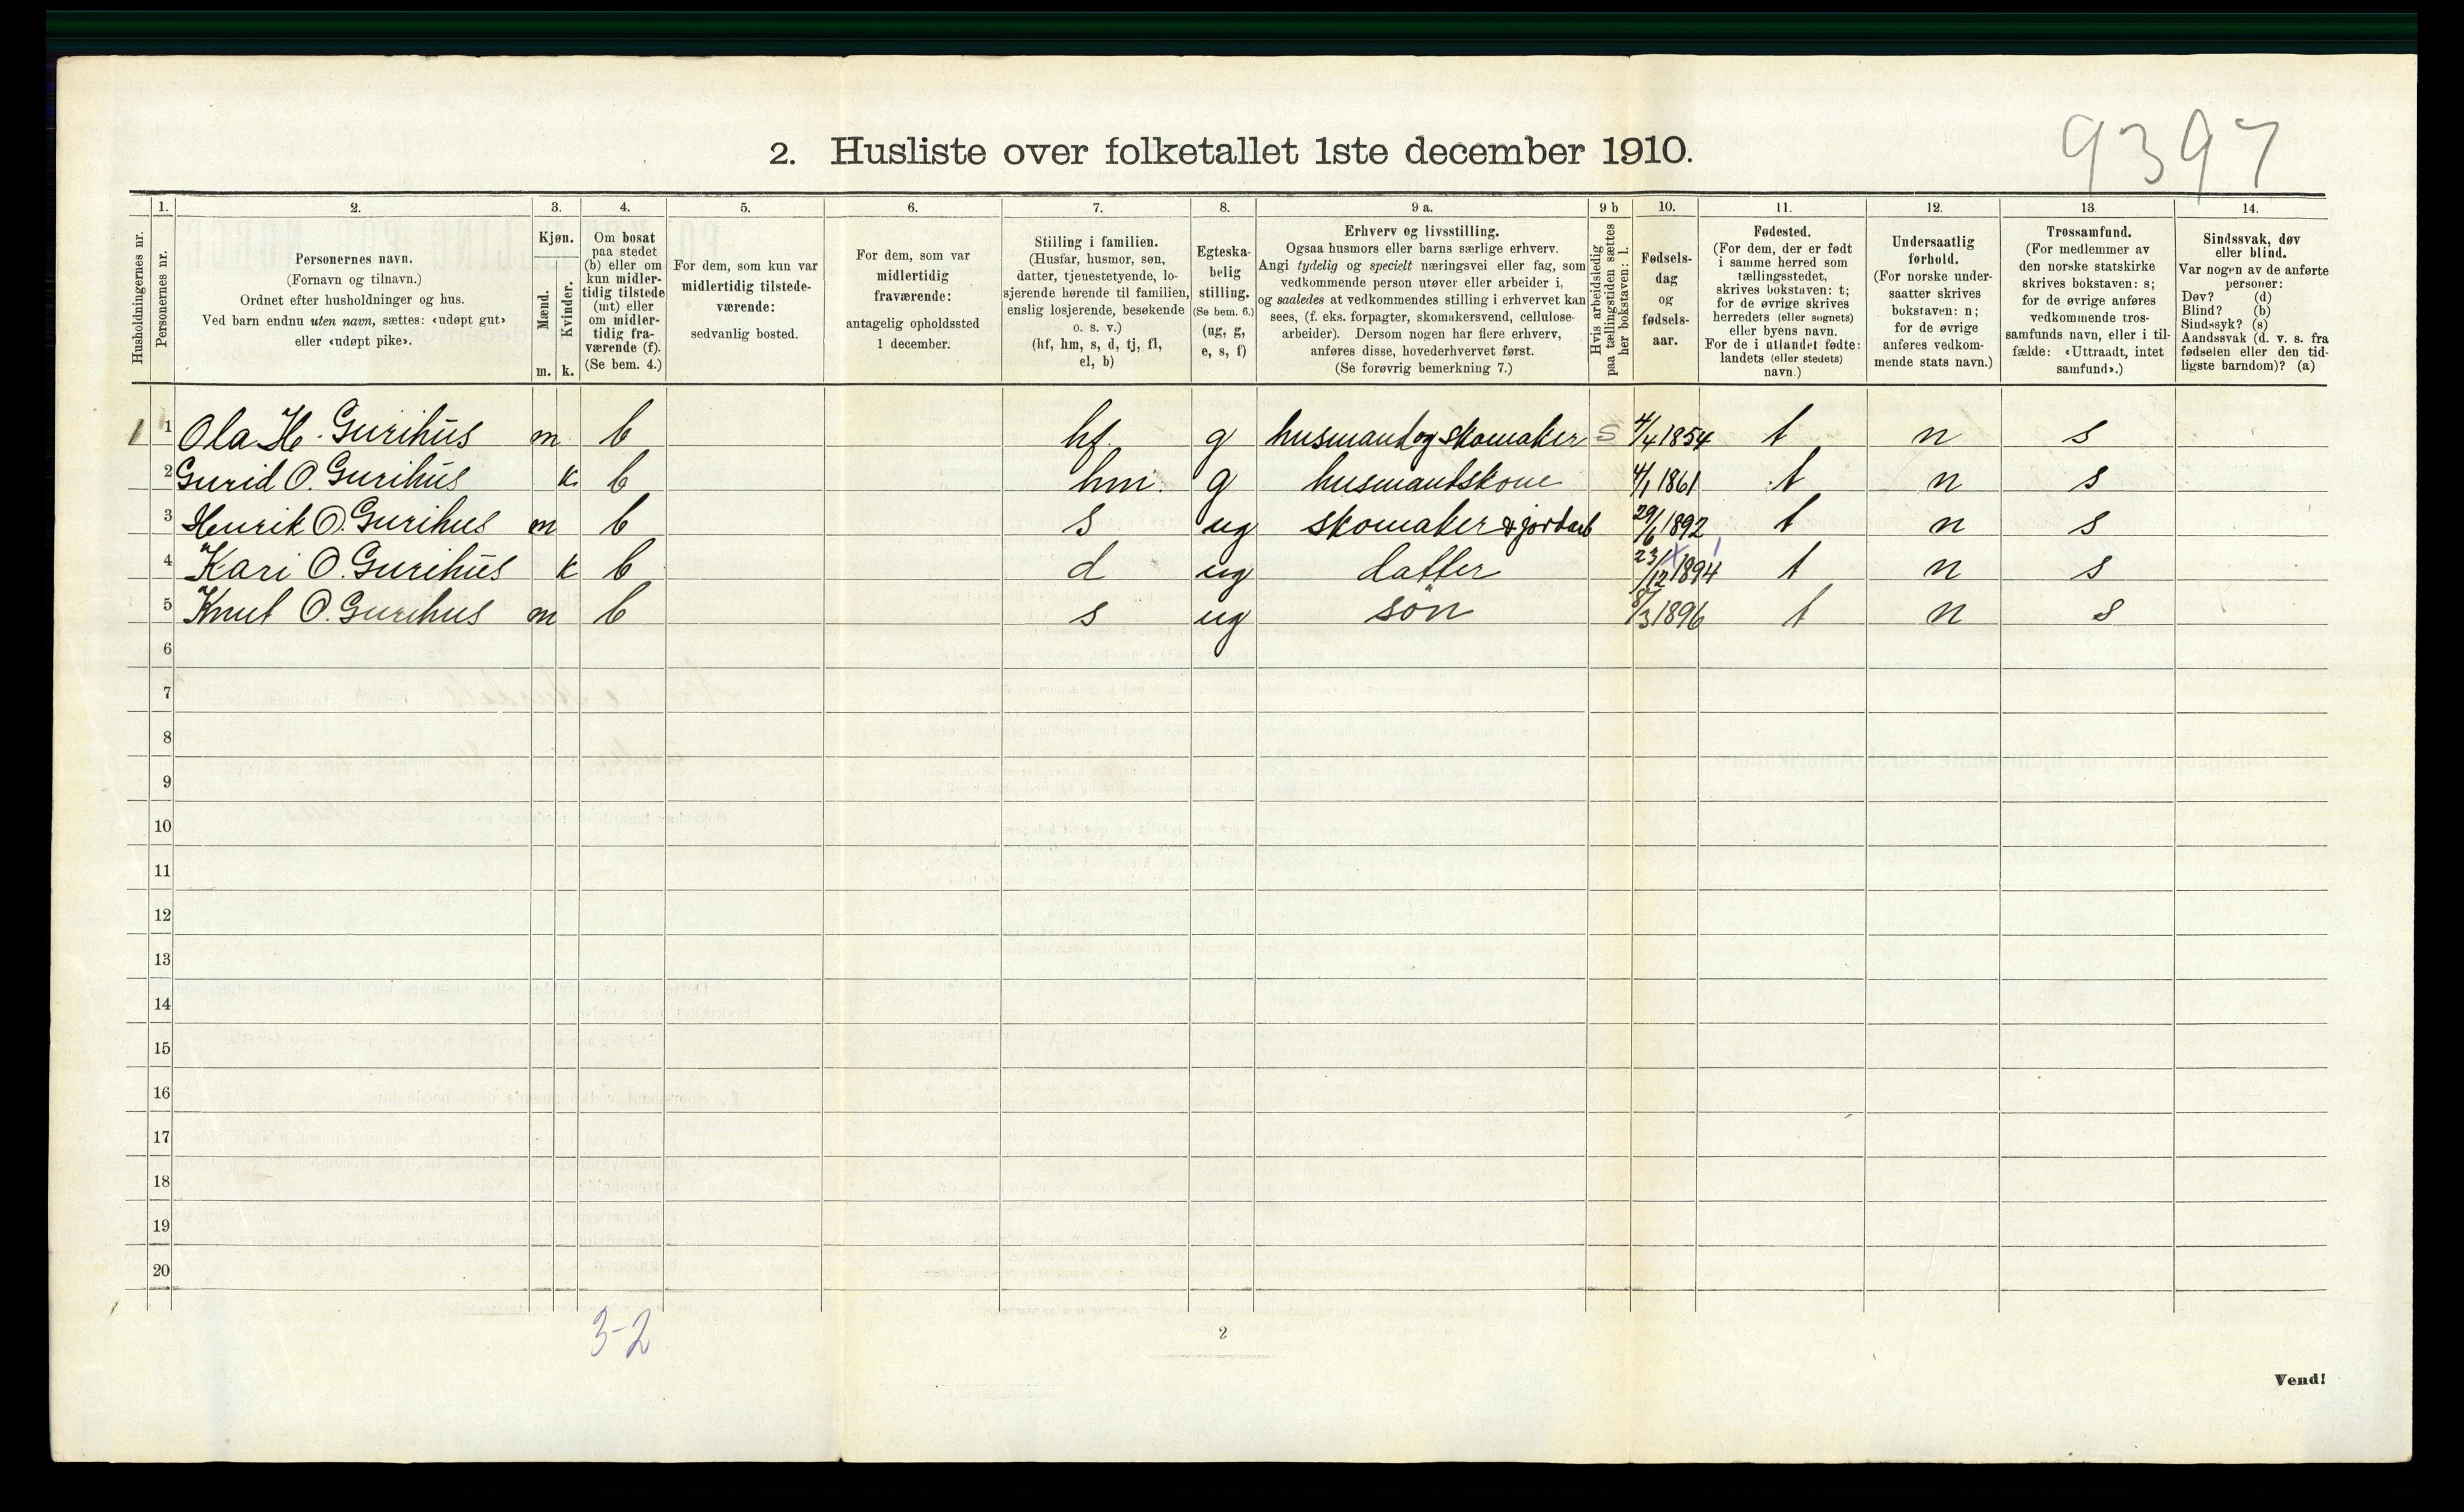 9397
2. Husliste over folketallet 1ste december 1910.
Husholdningernes nr.
1.
Personernes nr.
2.
Personernes navn.
(Fornavn og tilnavn.)
Ordnet efter husholdninger og hus.
Ved barn endnu uten navn, sættes: «udøpt gut»
eller «udøpt pike».
3.
Kjøn.
Mænd.
Kvinder.
m. k.
4.
Om bosat
paa stedet
(b) eller om
kun midler-
tidig tilstede
(mt) eller
om midler-
tidig fra-
værende (f).
(Se bem. 4.)
5.
For dem, som kun var
midlertidig tilstede-
værende:
sedvanlig bosted.
6.
For dem, som var
midlertidig
fraværende:
antagelig opholdssted
1 december.
7.
Stilling i familien.
(Husfar, husmor, søn,
datter, tjenestetyende, lo-
sjerende hørende til familien,
enslig losjerende, besøkende
o. s. v.)
(hf, hm, s, d, tj, fl,
el, b)
8.
Egteska-
belig
stilling.
(Se bem. 6.)
(ug, g,
e, s, f)
9 a.
Erhverv og livsstilling.
Ogsaa husmors eller barns særlige erhverv.
Angi tydelig og specielt næringsvei eller fag, som
vedkommende person utøver eller arbeider i,
og saaledes at vedkommendes stilling i erhvervet kan
sees, (f. eks. forpagter, skomakersvend, cellulose-
arbeider). Dersom nogen har flere erhverv,
anføres disse, hovederhvervet først.
(Se forøvrig bemerkning 7.)
9 b
Hvis arbeidsledig
paa tællingstiden sættes
her bokstaven: l.
10.
Fødsels-
dag
og
fødsels-
aar.
11.
Fødested.
(For dem, der er født
i samme herred som
tællingsstedet,
skrives bokstaven: t;
for de øvrige skrives
herredets (eller sognets)
eller byens navn.
For de i utlandet fødte:
landets (eller stedets)
navn.)
12.
Undersaatlig
forhold.
(For norske under-
saatter skrives
bokstaven: n;
for de øvrige
anføres vedkom-
mende stats navn.)
13.
Trossamfund.
(For medlemmer av
den norske statskirke
skrives bokstaven: s;
for de øvrige anføres
vedkommende tros-
samfunds navn, eller i til-
fælde: «Uttraadt, intet
samfund».)
14.
Sindssvak, døv
eller blind.
Var nogen av de anførte
personer:
Døv? (d)
Blind? (b)
Sindssyk? (s)
Aandssvak (d. v. s. fra
fødselen eller den tid-
ligste barndom)? (a)
1 1 Ola H. Gurihus m b hf. g husmand og skomaker S 4/4 1854 t n s
2 Gurid O. Gurihus k b hm. g husmandskone 4/1 1861 t n s
3 Henrik O. Gurihus m b s ug skomaker & jordarb 29/6 1892 t n s
4 Kari O. Gurihus k b d ug datter 23/12 1894 t n s
5 Knut O. Gurihus m b s ug søn 8/3 1896 t n s
6
7
8
9
10
11
12
13
14
15
16
17
18
19
20
3-2
2
Vend!